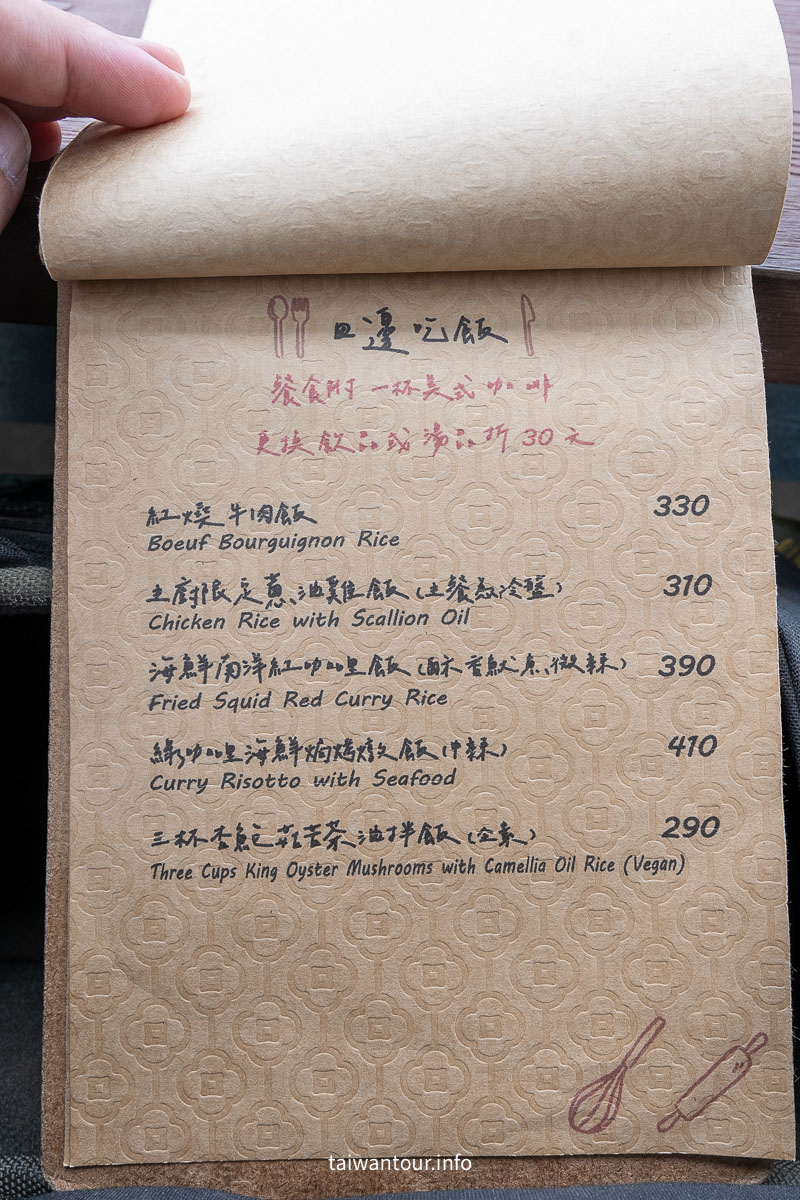 日邊吃飯
餐食附一杯美式咖啡
更換飲品或湯品折30元
紅燒牛肉飯 330
Boeuf Bourguignon Rice
主廚限定蔥油雞飯(主餐為冷盤) 310
Chicken Rice with Scallion Oil
海鮮南洋紅咖哩飯(酥香魷魚、微辣) 390
Fried Squid Red Curry Rice
綠咖哩海鮮焗烤燉飯(中辣) 410
Curry Risotto with Seafood
三杯杏鮑菇苦茶油拌飯(全素) 290
Three Cups King Oyster Mushrooms with Camellia Oil Rice (Vegan)
taiwantour.info